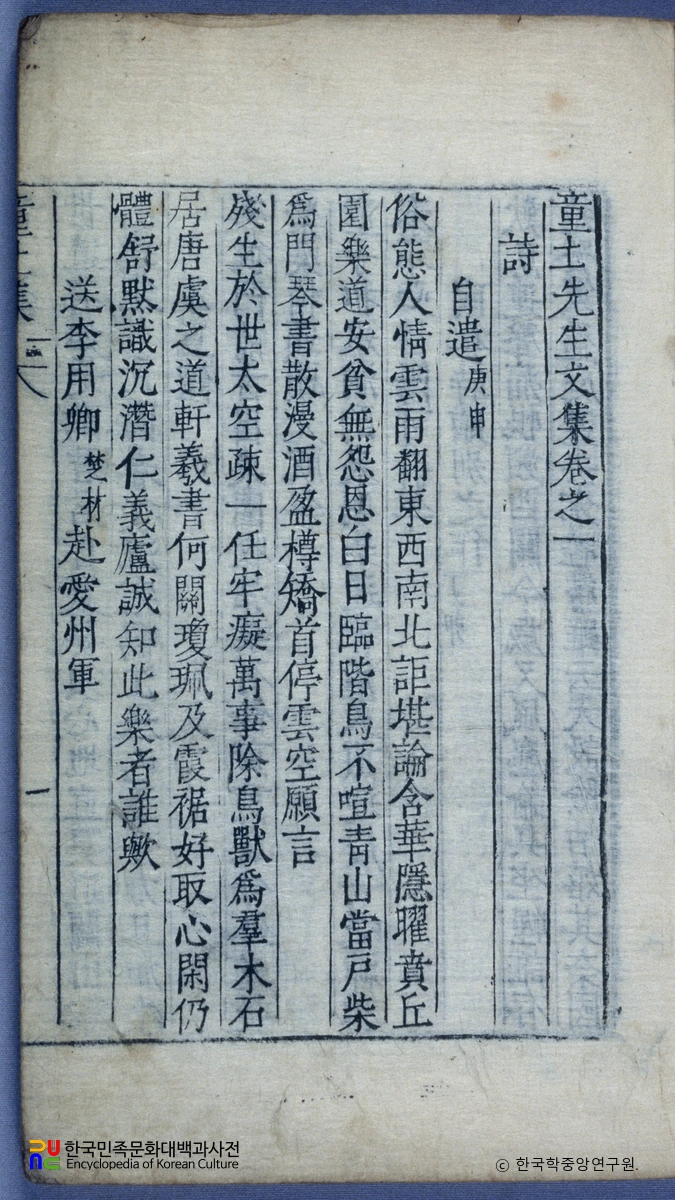 童土先生文集卷之一
詩
自遣庚申
俗態人情雲雨翻東西南北詎堪論含華隱曜賁丘
園樂道安貧無怨恩白日臨階鳥不喧靑山當戶柴
爲門琴書散漫酒盈樽矯首停雲空願言
殘生於世太空疎一任牢癡萬事除鳥獸爲羣木石
居唐虞之道軒羲書何關瓊珮及霞裾好取心閑仍
體舒默識沉潛仁義廬誠知此樂者誰歟
送李用卿楚材赴愛州軍
童土集
一
한국민족문화대백과사전
Encyclopedia of Korean Culture
© 한국학중앙연구원.